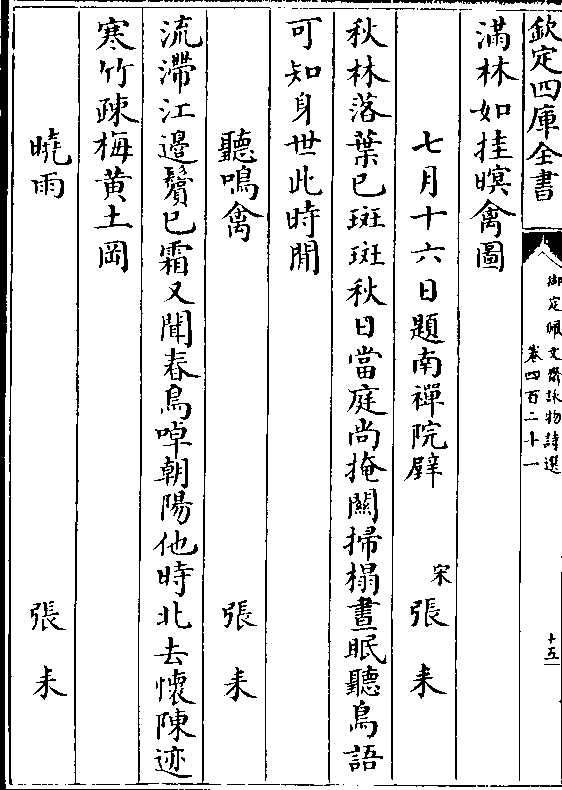 欽定四庫全書
御定佩文齋詠物詩選
卷四百二十一
十五
滿林如挂暝禽圖
七月十六日題南禪院壁 宋 張耒
秋林落葉已斑斑秋日當庭尚掩關掃榻晝眠聽鳥語
可知身世此時閒
聽鳴禽 張耒
流滯江邊鬢已霜又聞春鳥哢朝陽他時北去懷陳迹
寒竹疎梅黃土岡
曉雨 張耒